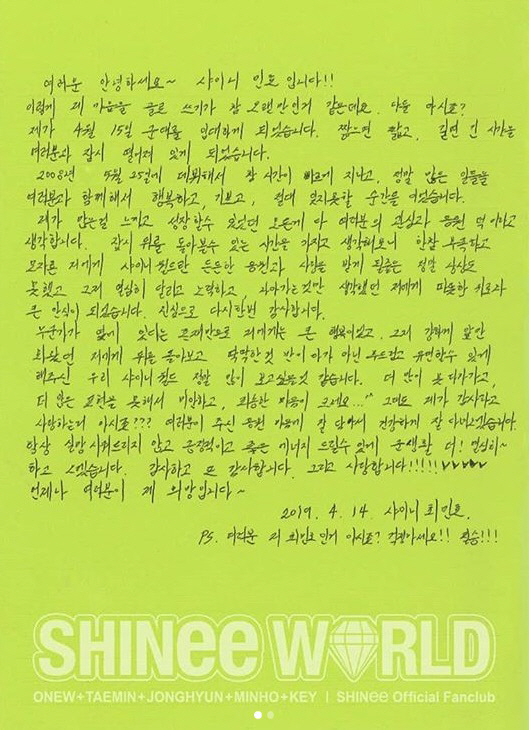 여러분 안녕하세요~ 샤이니 민호입니다!!
이렇게 제 마음을 글로 쓰기가 참 오랜만인거 같은데요. 다들 아시죠?
제가 4월 15일 군대를 입대하게 되었습니다. 짧으면 짧고, 길면 긴 시간을
여러분과 잠시 떨어져 있게 되었습니다.
2008년 5월 25일에 데뷔해서 참 시간이 빠르게 지나고, 정말 많은 일들을
여러분과 함께해서 행복하고, 기쁘고, 절대 잊지못할 순간을 보냈습니다.
제가 많은걸 느끼고 성장할수 있었던 모든게 다 여러분의 관심과 응원 덕이라고
생각합니다. 잠시 뒤를 돌아볼수 있는 시간을 가지고 생각해보니 한참 부족하고
모자른 저에게 샤이니월드란 든든한 응원과 사랑을 받게 될줄은 정말 상상도
못했고 그저 열심히 달리고 노력하고 나아가는것만 생각했던 저에게 따뜻한 위로와
큰 안식이 되었습니다. 진심으로 다시한번 감사합니다.
누군가가 앞에 있다는 존재만으로 저에게는 큰 행복이었고, 그저 강하게 앞만
봐왔던 저에게 뒤를 돌아보고 딱딱한것 만이 아닌 부드럽고 유연할수 있게
해주신 우리 샤이니월드 정말 많이 보고싶을것 같습니다. 더 많이 못 다가가고,
더 많은 표현을 못해서 미안하고, 죄송한 마음이 크네요..^^ 그래도 제가 감사하고
사랑하는데 아시죠??? 여러분이 주신 응원 마음에 잘 담아서 건강하게 잘 다녀오겠습니다.
항상 실망시켜드리지 않고 긍정적이고 좋은 에너지 드릴수있게 군생활 더! 열심히~
하고 오겠습니다. 감사하고 또 감사합니다. 그리고 사랑합니다!!!!!♥♥♥♥♥
언제나 여러분이 제 희망입니다~
2019. 4. 14. 샤이니 최민호.
PS. 여러분 저 최민호인거 아시죠? 걱정마세요!! 필승!!!
SHINee WORLD
ONEW+TAEMIN+JONGHYUN+MINHO+KEY | SHINee Official Fanclub